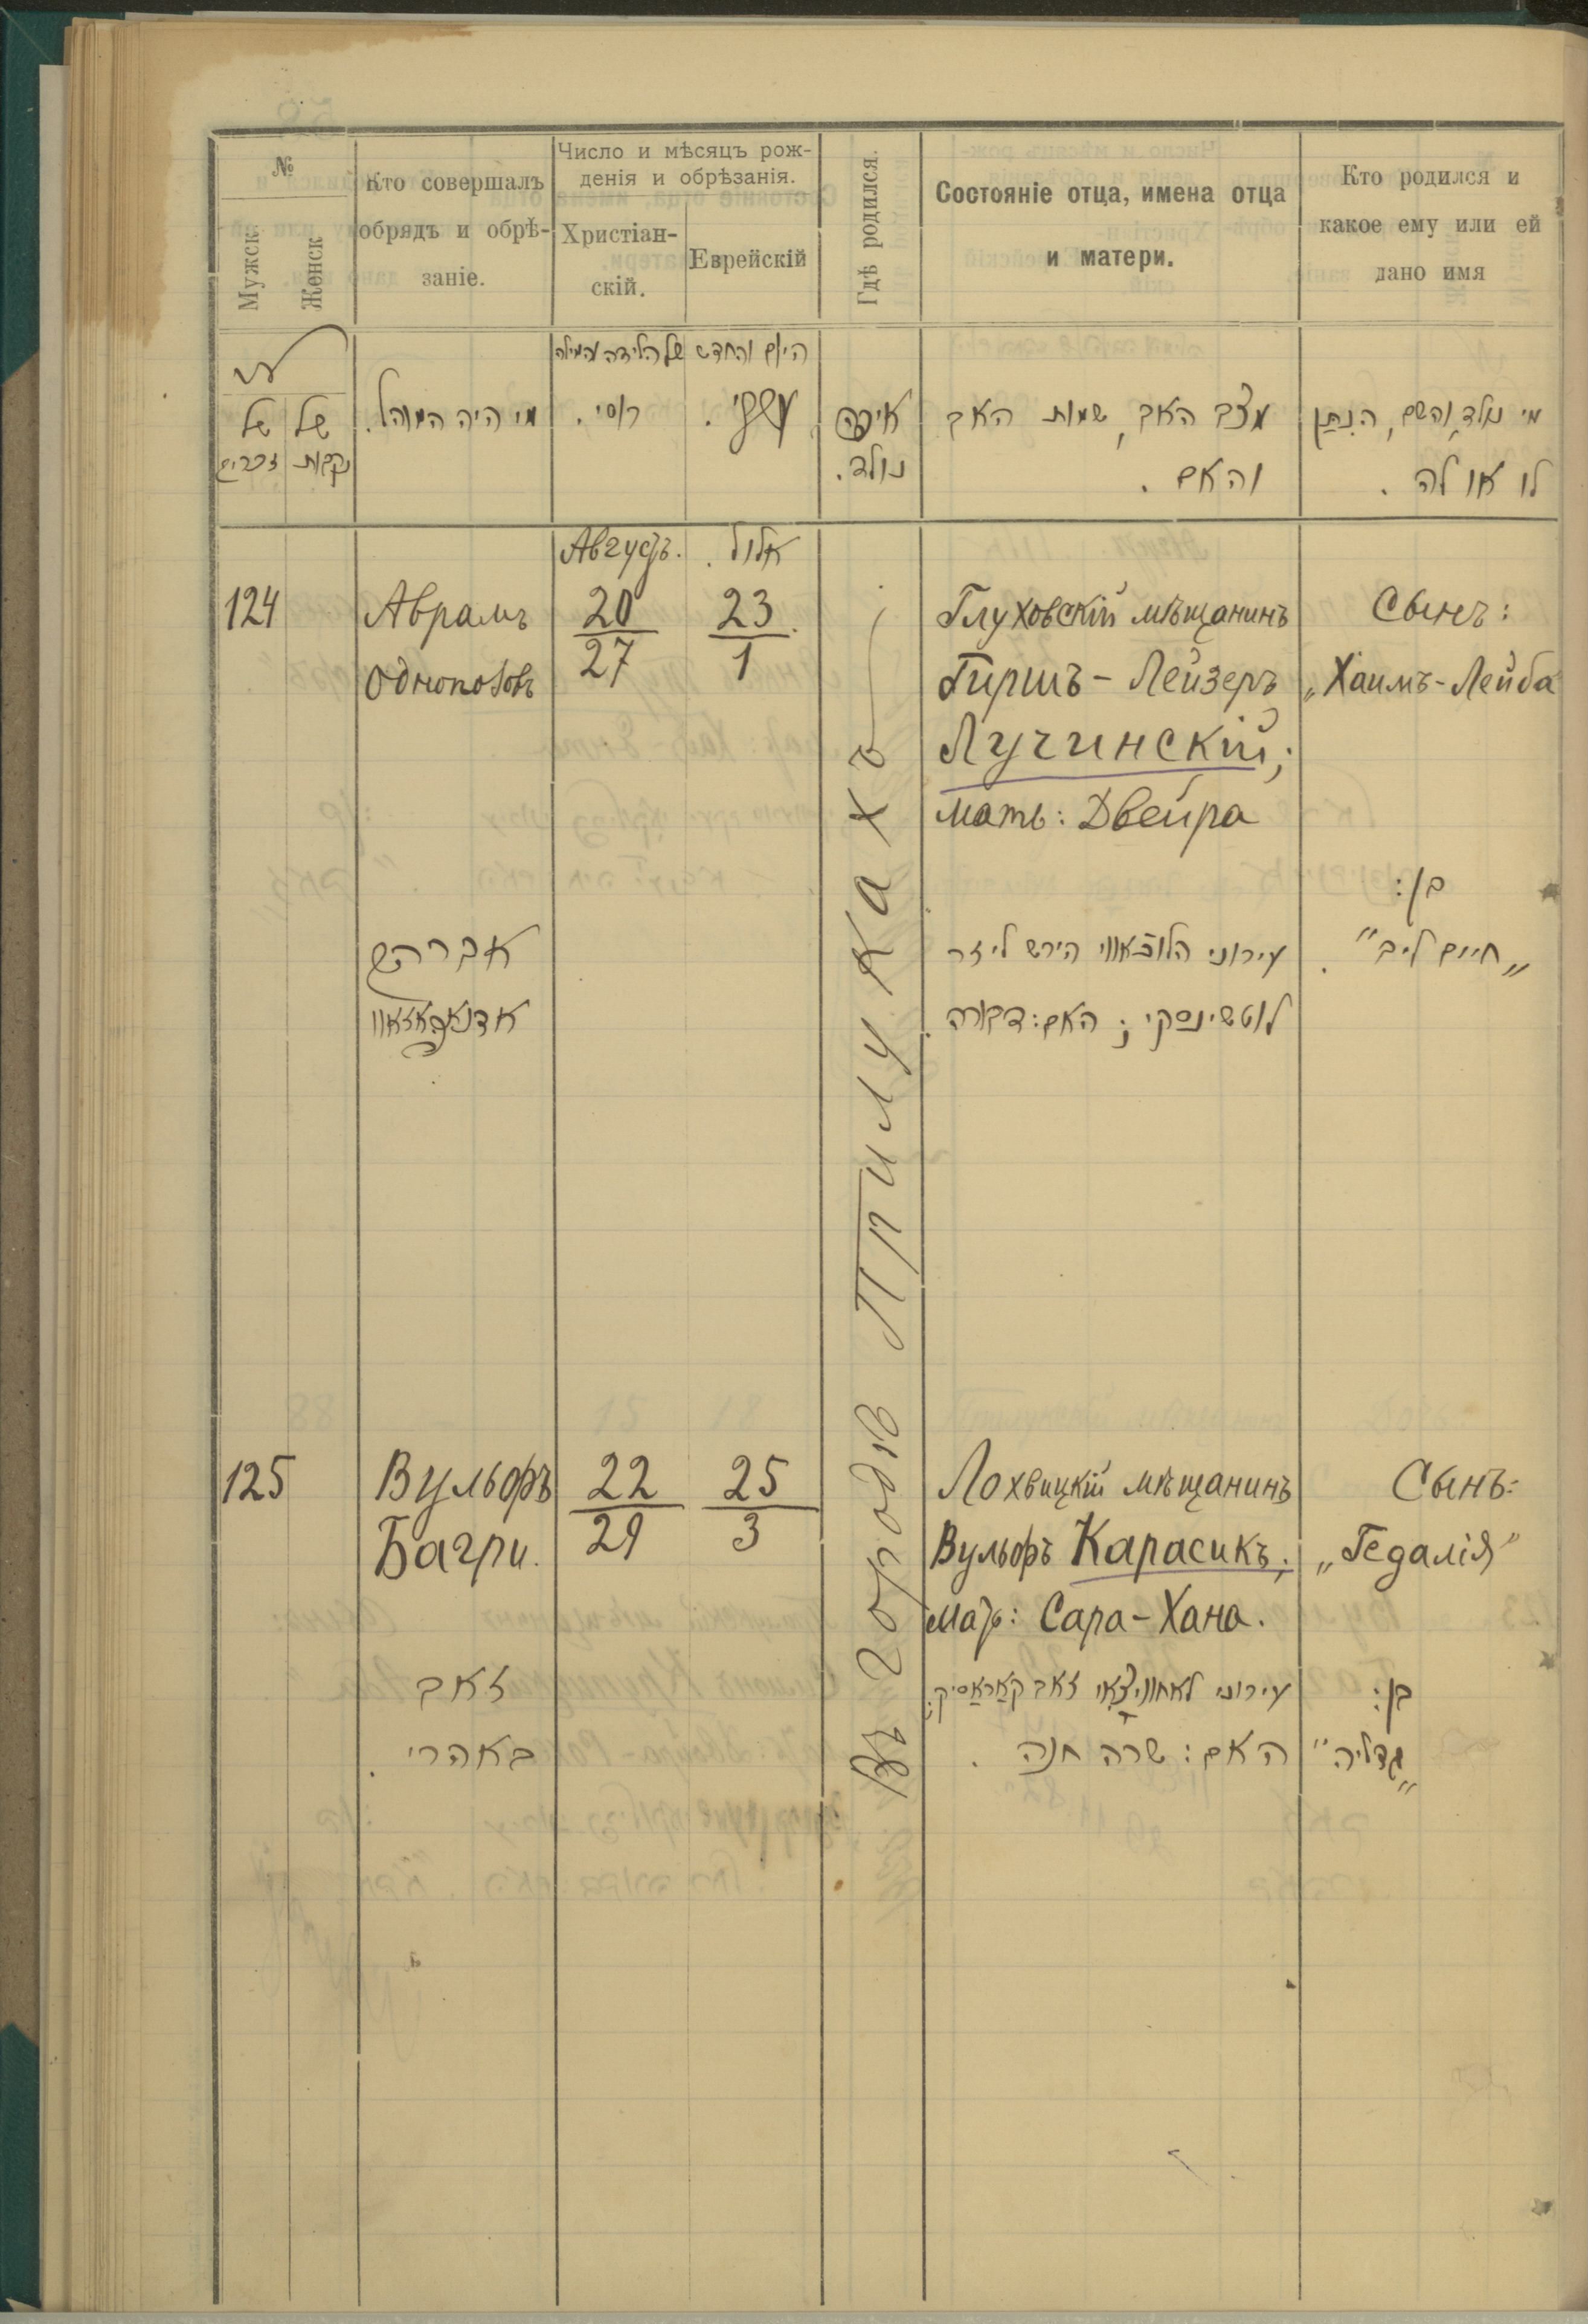 №
Мужск
Женск
Кто совершалъ
обрядъ и обрѣ-
заніе.
Число и мѣсяцъ рож-
денія и обрѣзанія.
Христіан-
скій.
Еврейскій
Гдѣ родился.
Состояніе отца, имена отца
и матери.
Кто родился и
какое ему или ей
дано имя
של
זכרים
של
נקבות
מי היה המוהל.
היום והחדש של הלידה והמילה
רוסי.
עברי.
איפה
נולד.
מצב האב, שמות האב
והאם.
מי נולד, והשם הנתן
לו או לה.
Августъ.
אלול.
124
Аврамъ
Однопозовъ
20
27
23
1
Глуховскій мѣщанинъ
Гиршъ-Лейзеръ
Лучинскій;
мать: Двейра
Сынъ:
„Хаимъ-Лейба
אברהם
אדנאפאזאוו
עירוני הלוכאווי הירש ליזר
לוטשינסקי; האם: דבורה.
בן:
„חיים ליב".
Въ городѣ Прилукахъ
125
Вульфъ
Багри.
22
29
25
3
Лохвицкій мѣщанинъ
Вульфъ Карасикъ;
мать: Сара-Хана.
Сынъ:
„Гедалія"
זאב
באהרי.
עירוני לאחוויצאי זאב קאראסיק;
האם: שרה חנה.
בן:
„גדליה"